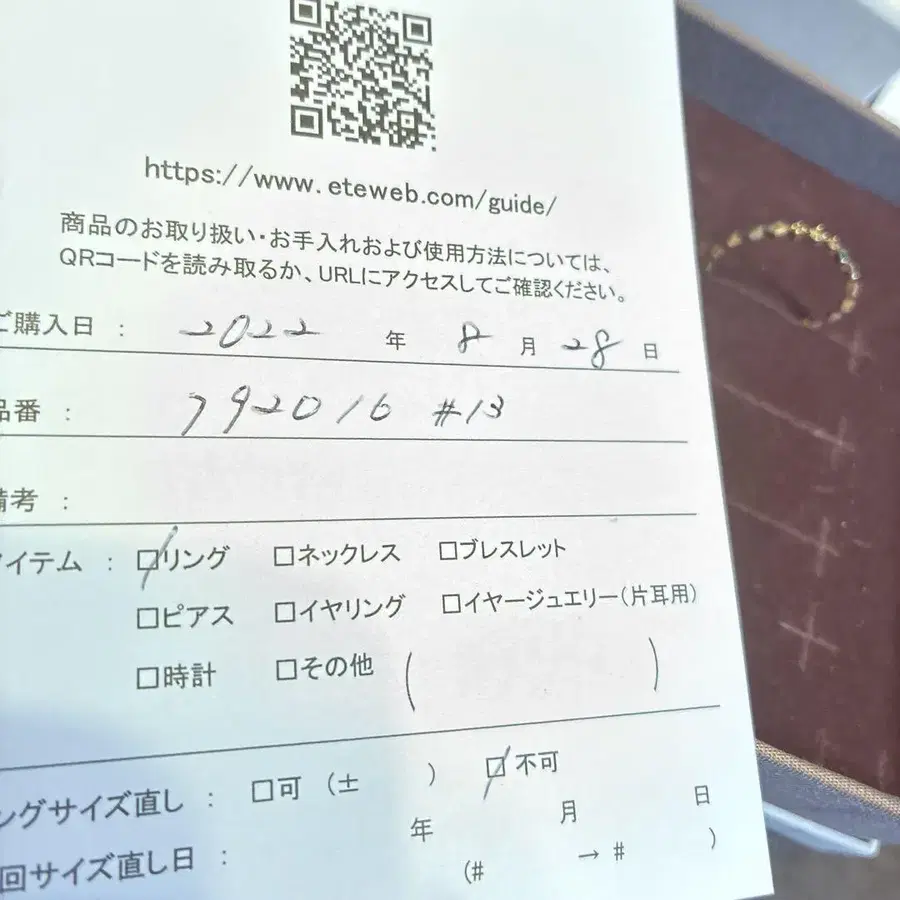 https://www.eteweb.com/guide/
商品のお取り扱い・お手入れおよび使用方法については、
QRコードを読み取るか、URLにアクセスしてご確認ください。
ご購入日 : 2022 年 8 月 28 日
品番 : 792016 #13
備考 :
アイテム : □リング □ネックレス □ブレスレット
□ピアス □イヤリング □イヤージュエリー(片耳用)
□時計 □その他 ( )
ングサイズ直し : □可 (± ) □不可
回サイズ直し日 : 年 月 日
(# → # )